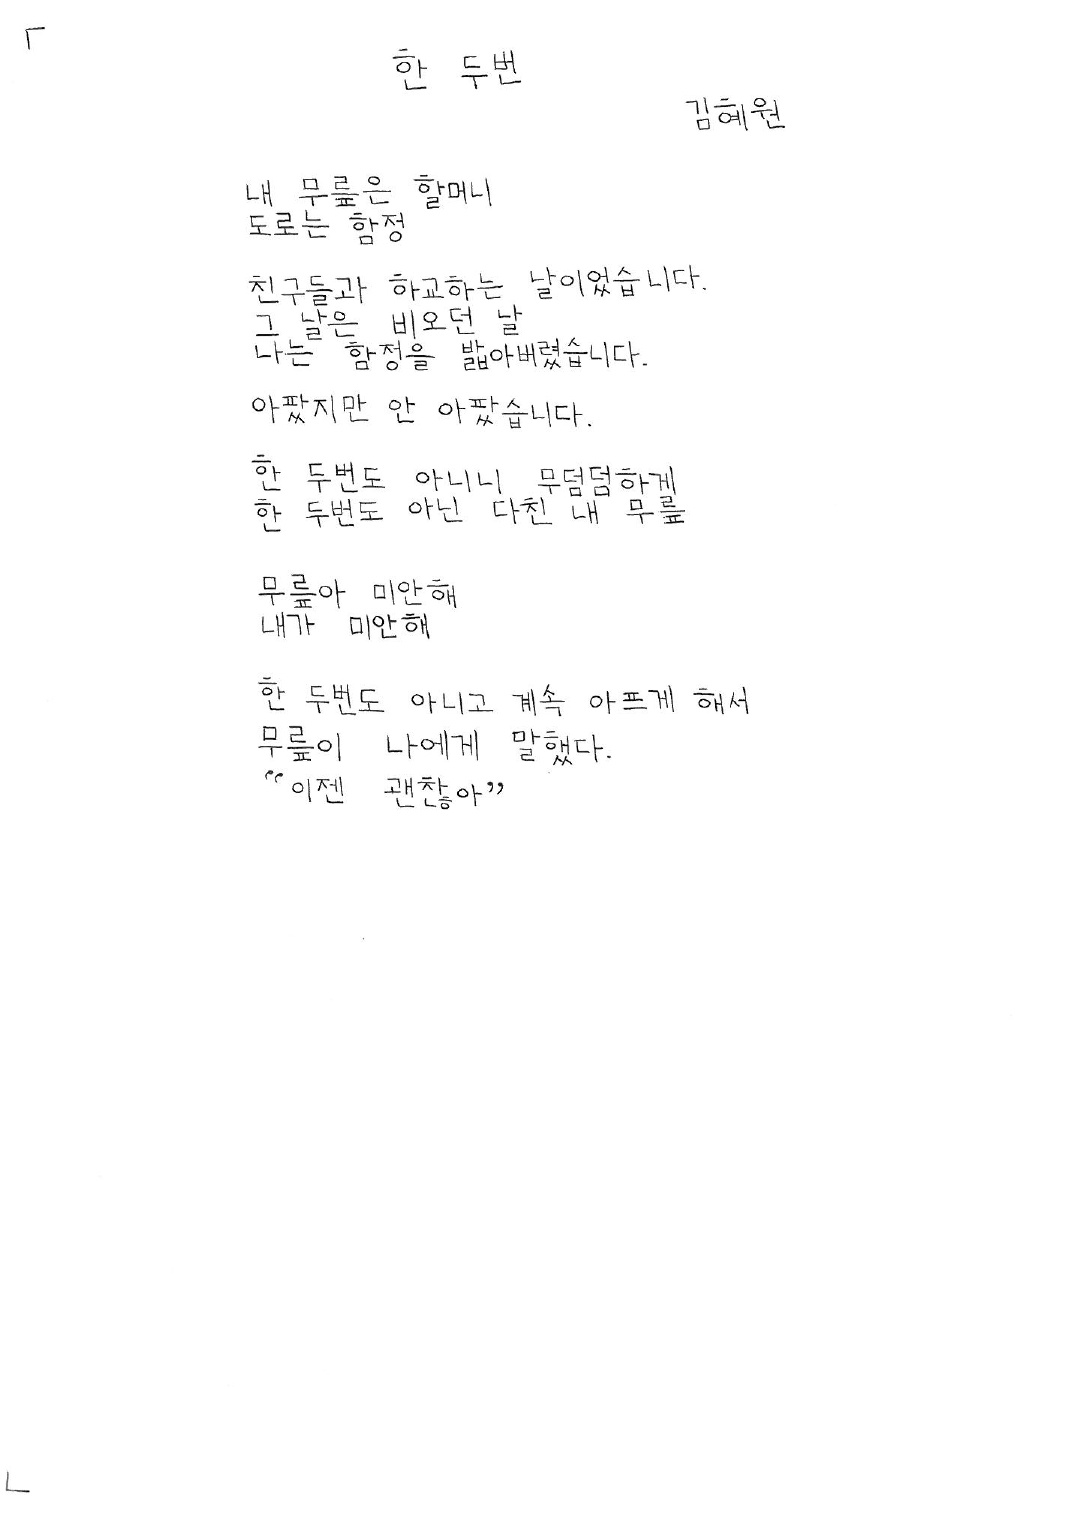 한 두번
김혜원
내 무릎은 할머니
도로는 함정
친구들과 하교하는 날이었습니다.
그 날은 비오던 날
나는 함정을 밟아버렸습니다.
아팠지만 안 아팠습니다.
한 두번도 아니니 무덤덤하게
한 두번도 아닌 다친 내 무릎
무릎아 미안해
내가 미안해
한 두번도 아니고 계속 아프게 해서
무릎이 나에게 말했다.
“이젠 괜찮아”